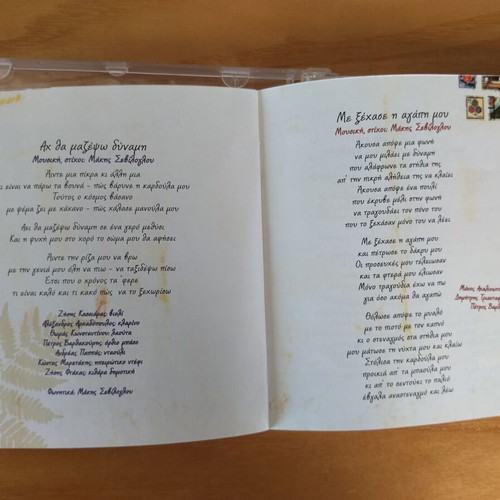 Αχ θα μαζέψω δύναμη
Μουσική, στίχοι: Μάκης Σεβίλογλου
Άιντε μια πίκρα κι άλλη μια
τι είναι να πάρω τα βουνά - πώς βάρυνε η καρδούλα μου
Τούτος ο κόσμος βάσανο
με ψέμα ζει με χάχανο - πώς χάλασε μανούλα μου
Άει θα μαζέψω δύναμη σε ένα χερό μεθύσι
Και η ψυχή μου στο χορό το σώμα μου θα αφήσει
Άιντε την ρίζα μου να βρω
με την χενιά μου όλη να πιω - να ταξιδέψω πίσω
Έτσι που ο χρόνος τα 'φερε
τι είναι καλό και τι κακό πώς να το ξεχωρίσω
Ζήσης Κασιάρας: βιολί
Αλέξανδρος Αρκαδόπουλος: κλαρίνο
Θωμάς Κωνσταντίνου: λαούτο
Πέτρος Βαρθακούρης: όρθιο μπάσο
Ανδρέας Παππάς: νταούλι
Κώστας Μερετάκης: ηπειρώτικο ντέφι
Ζήσης Φτάκας: κιθάρα δημοτική
Φωνητικά: Μάκης Σεβίλογλου
Με ξέχασε η αγάπη μου
Μουσική, στίχοι: Μάκης Σεβίλογλου
Άκουσα απόψε μια φωνή
να μου μιλάει με δύναμη
που αλάφρωνε τα στήθια της
απ' την πικρή αλήθεια της να κλαίει
Άκουσα απόψε ένα πουλί
που έκρυβε μέλι στην φωνή
να τραγουδάει τον πόνο του
που το ξέχασάν μόνο του να λέει
Με ξέχασε η αγάπη μου
και πέτρωσε το δάκρυ μου
Οι προσευχές μου τέλειωσαν
και τα φτερά μου έλιωσαν
Μόνο τραγούδια έχω να πω
για όσο ακόμα θα αγαπώ
Θόλωσε απόψε το μυαλό
με το ποτό με τον καπνό
κι ο στεναγμός στα στήθια μου
που μάτωσε τη νύχτα μου και κλαίω
Στόλισα την καρδούλα μου
προικιά απ' τα μπαούλα μου
κι απ' το σεντούκι το παλιό
έβγαλα αναστεναγμό και λέω